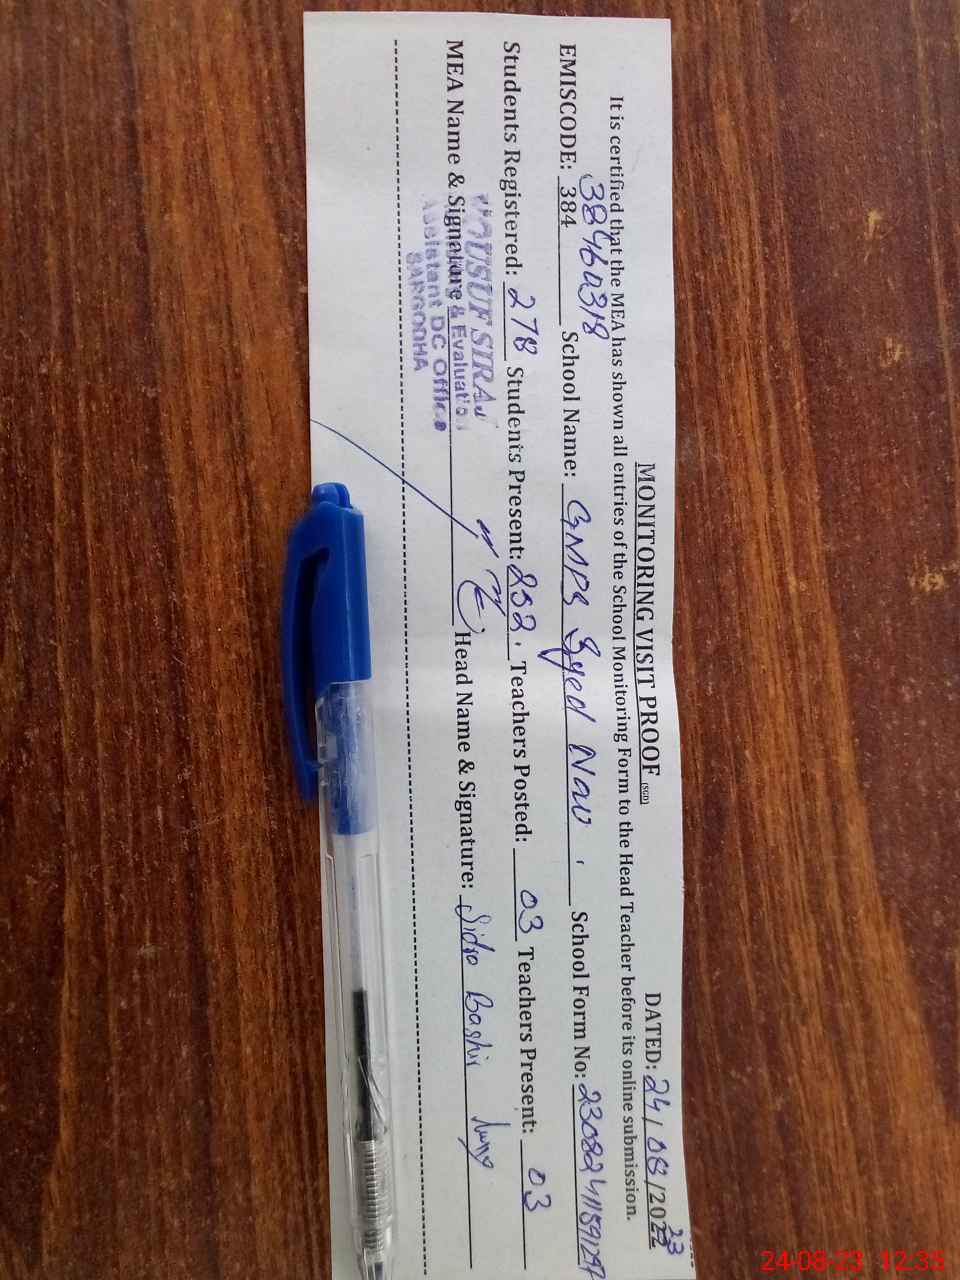 MONITORING VISIT PROOF (SGD) DATED: 24/08/2023
It is certified that the MEA has shown all entries of the School Monitoring Form to the Head Teacher before its online submission.
38460318
EMISCODE: 384 School Name: GMPS Syed Nau School Form No: 230824115911297
Students Registered: 278 Students Present: 252 Teachers Posted: 03 Teachers Present: 03
MEA Name & Signature Head Name & Signature: Sidra Bashir
YOUSUF SIRAJ
& Evaluation
Assistant DC Office
SARGODHA
24-08-23 12:35